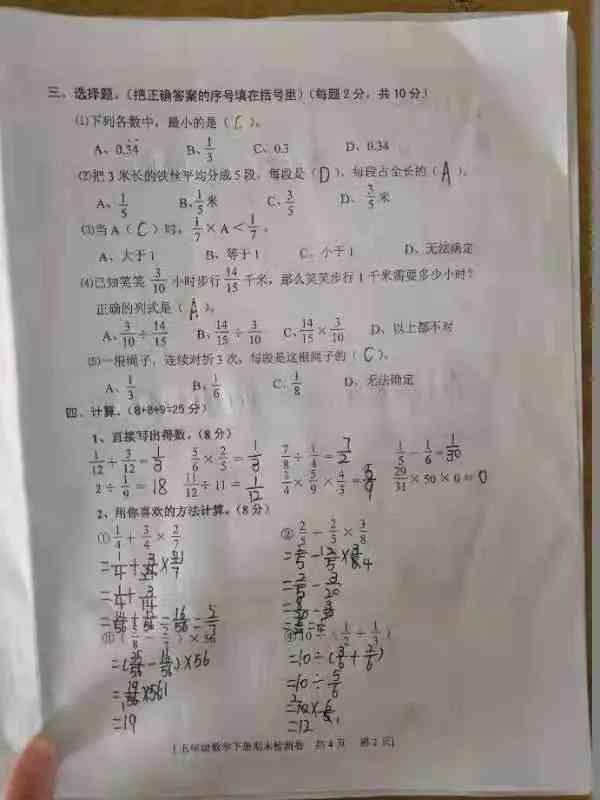 三、选择题。(把正确答案的序号填在括号里)(每题2分，共10分)
(1)下列各数中，最小的是( C )。
A、0.3̇4̇ B、1/3 C、0.3 D、0.34
(2)把3米长的铁丝平均分成5段，每段是( D )，每段占全长的( A )。
A、1/5 B、1/5米 C、3/5 D、3/5米
(3)当A( C )时，1/7×A<1/7。
A、大于1 B、等于1 C、小于1 D、无法确定
(4)已知笑笑3/10小时步行14/15千米，那么笑笑步行1千米需要多少小时？
正确的列式是( A )。
A、3/10÷14/15 B、14/15÷3/10 C、14/15×3/10 D、以上都不对
(5)一根绳子，连续对折3次，每段是这根绳子的( C )。
A、1/3 B、1/6 C、1/8 D、无法确定
四、计算。(8+8+9=25分)
1、直接写出得数。(8分)
1/12+3/12=1/3 5/6×2/5=1/3 7/8÷1/4=7/2 1/5-1/6=1/30
2÷1/9=18 11/12÷11=1/12 3/4×5/9×4/3=5/9 29/31×50×0=0
2、用你喜欢的方法计算。(8分)
①1/4+3/4×2/7 ②2/5-2/5×3/8
=1/4+3/4×2/7 =2/5-2/5×3/8
=1/4+3/14 =2/5-3/20
=14/56+12/56
×56 ④10÷(1/2+1/3)
=(35/56-16/56)×56 =10÷(3/6+2/6)
=19/56×56 =10÷5/6
=19 =10×6/5
=12
五年级数学下册期末检测卷 共4页 第2页